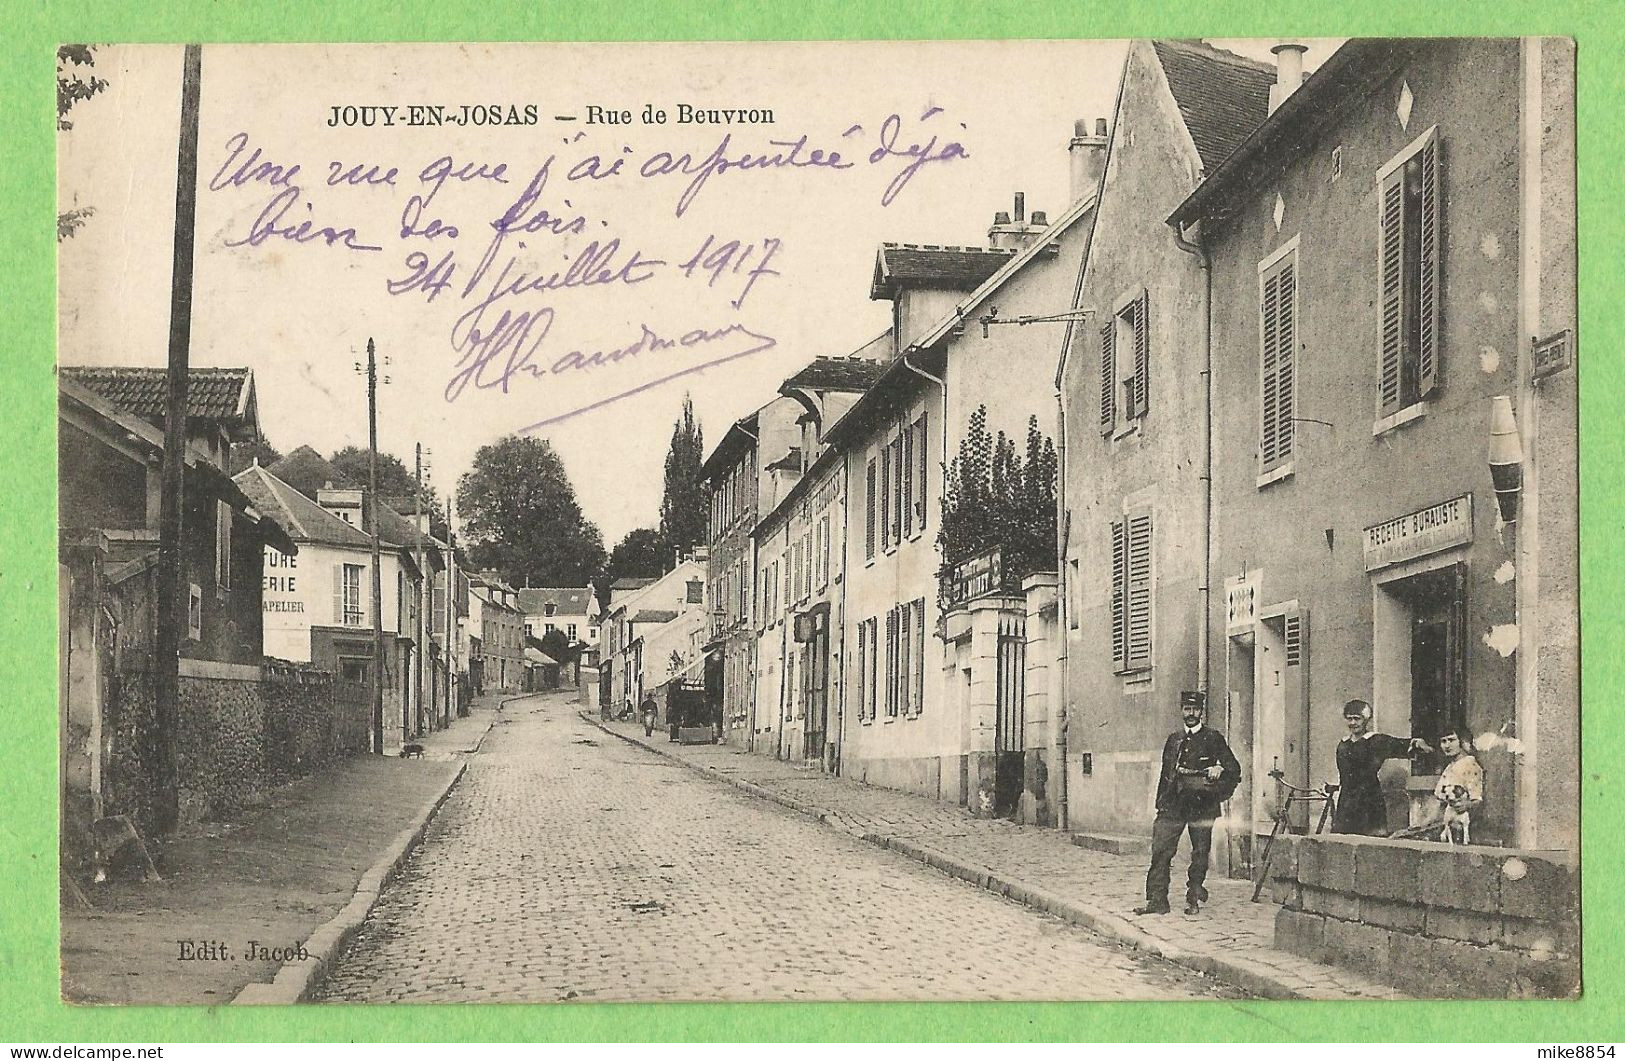 JOUY-EN-JOSAS — Rue de Beuvron
Une rue que j'ai arpentée déjà
bien des fois.
24 juillet 1917
URE
ERIE
APELIER
RECETTE BURALISTE
Edit. Jacob
delcampe.net
mike8854